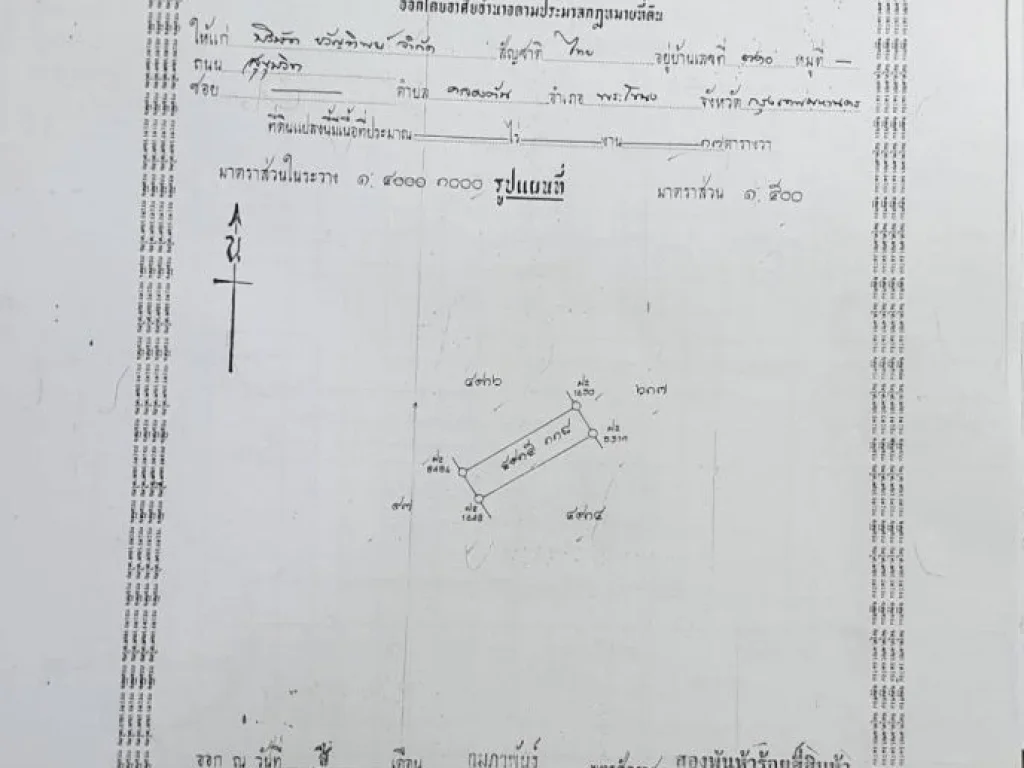 ออกโดยอาศัยอำนาจตามประมวลกฎหมายที่ดิน
ให้แก่ บริษัท ขวัญทิพย์ จำกัด สัญชาติ ไทย อยู่บ้านเลขที่ ๑๗๖๐ หมู่ที่ —
ถนน สุขุมวิท
ซอย — ตำบล คลองตัน อำเภอ พระโขนง จังหวัด กรุงเทพมหานคร
ที่ดินแปลงนี้มีเนื้อที่ประมาณ — ไร่ — งาน — ๓๗ ตารางวา
มาตราส่วนในระวาง ๑:๔๐๐๐ ๑๐๐๐ รูปแผนที่ มาตราส่วน ๑:๕๐๐
น
๔๗๓๖ ผ๖ 1650 ๖๓๗
๔๗๓๕ ๓๓๘
ผ๖
ผ๖
๙๗ ผ๖ ๔๗๓๔
ออก ณ วันที่ สี่ เดือน กุมภาพันธ์ พุทธศักราช สองพันห้าร้อยสี่สิบห้า